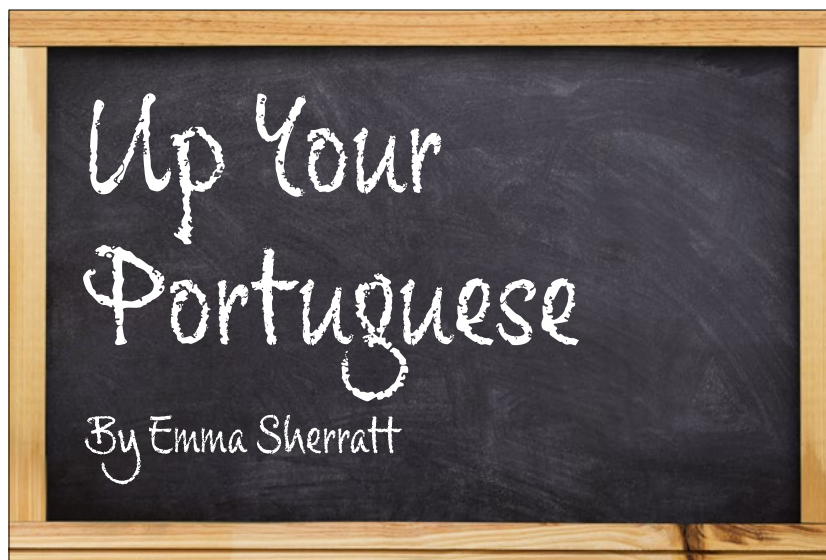 Up Your
Portuguese
By Emma Sherratt